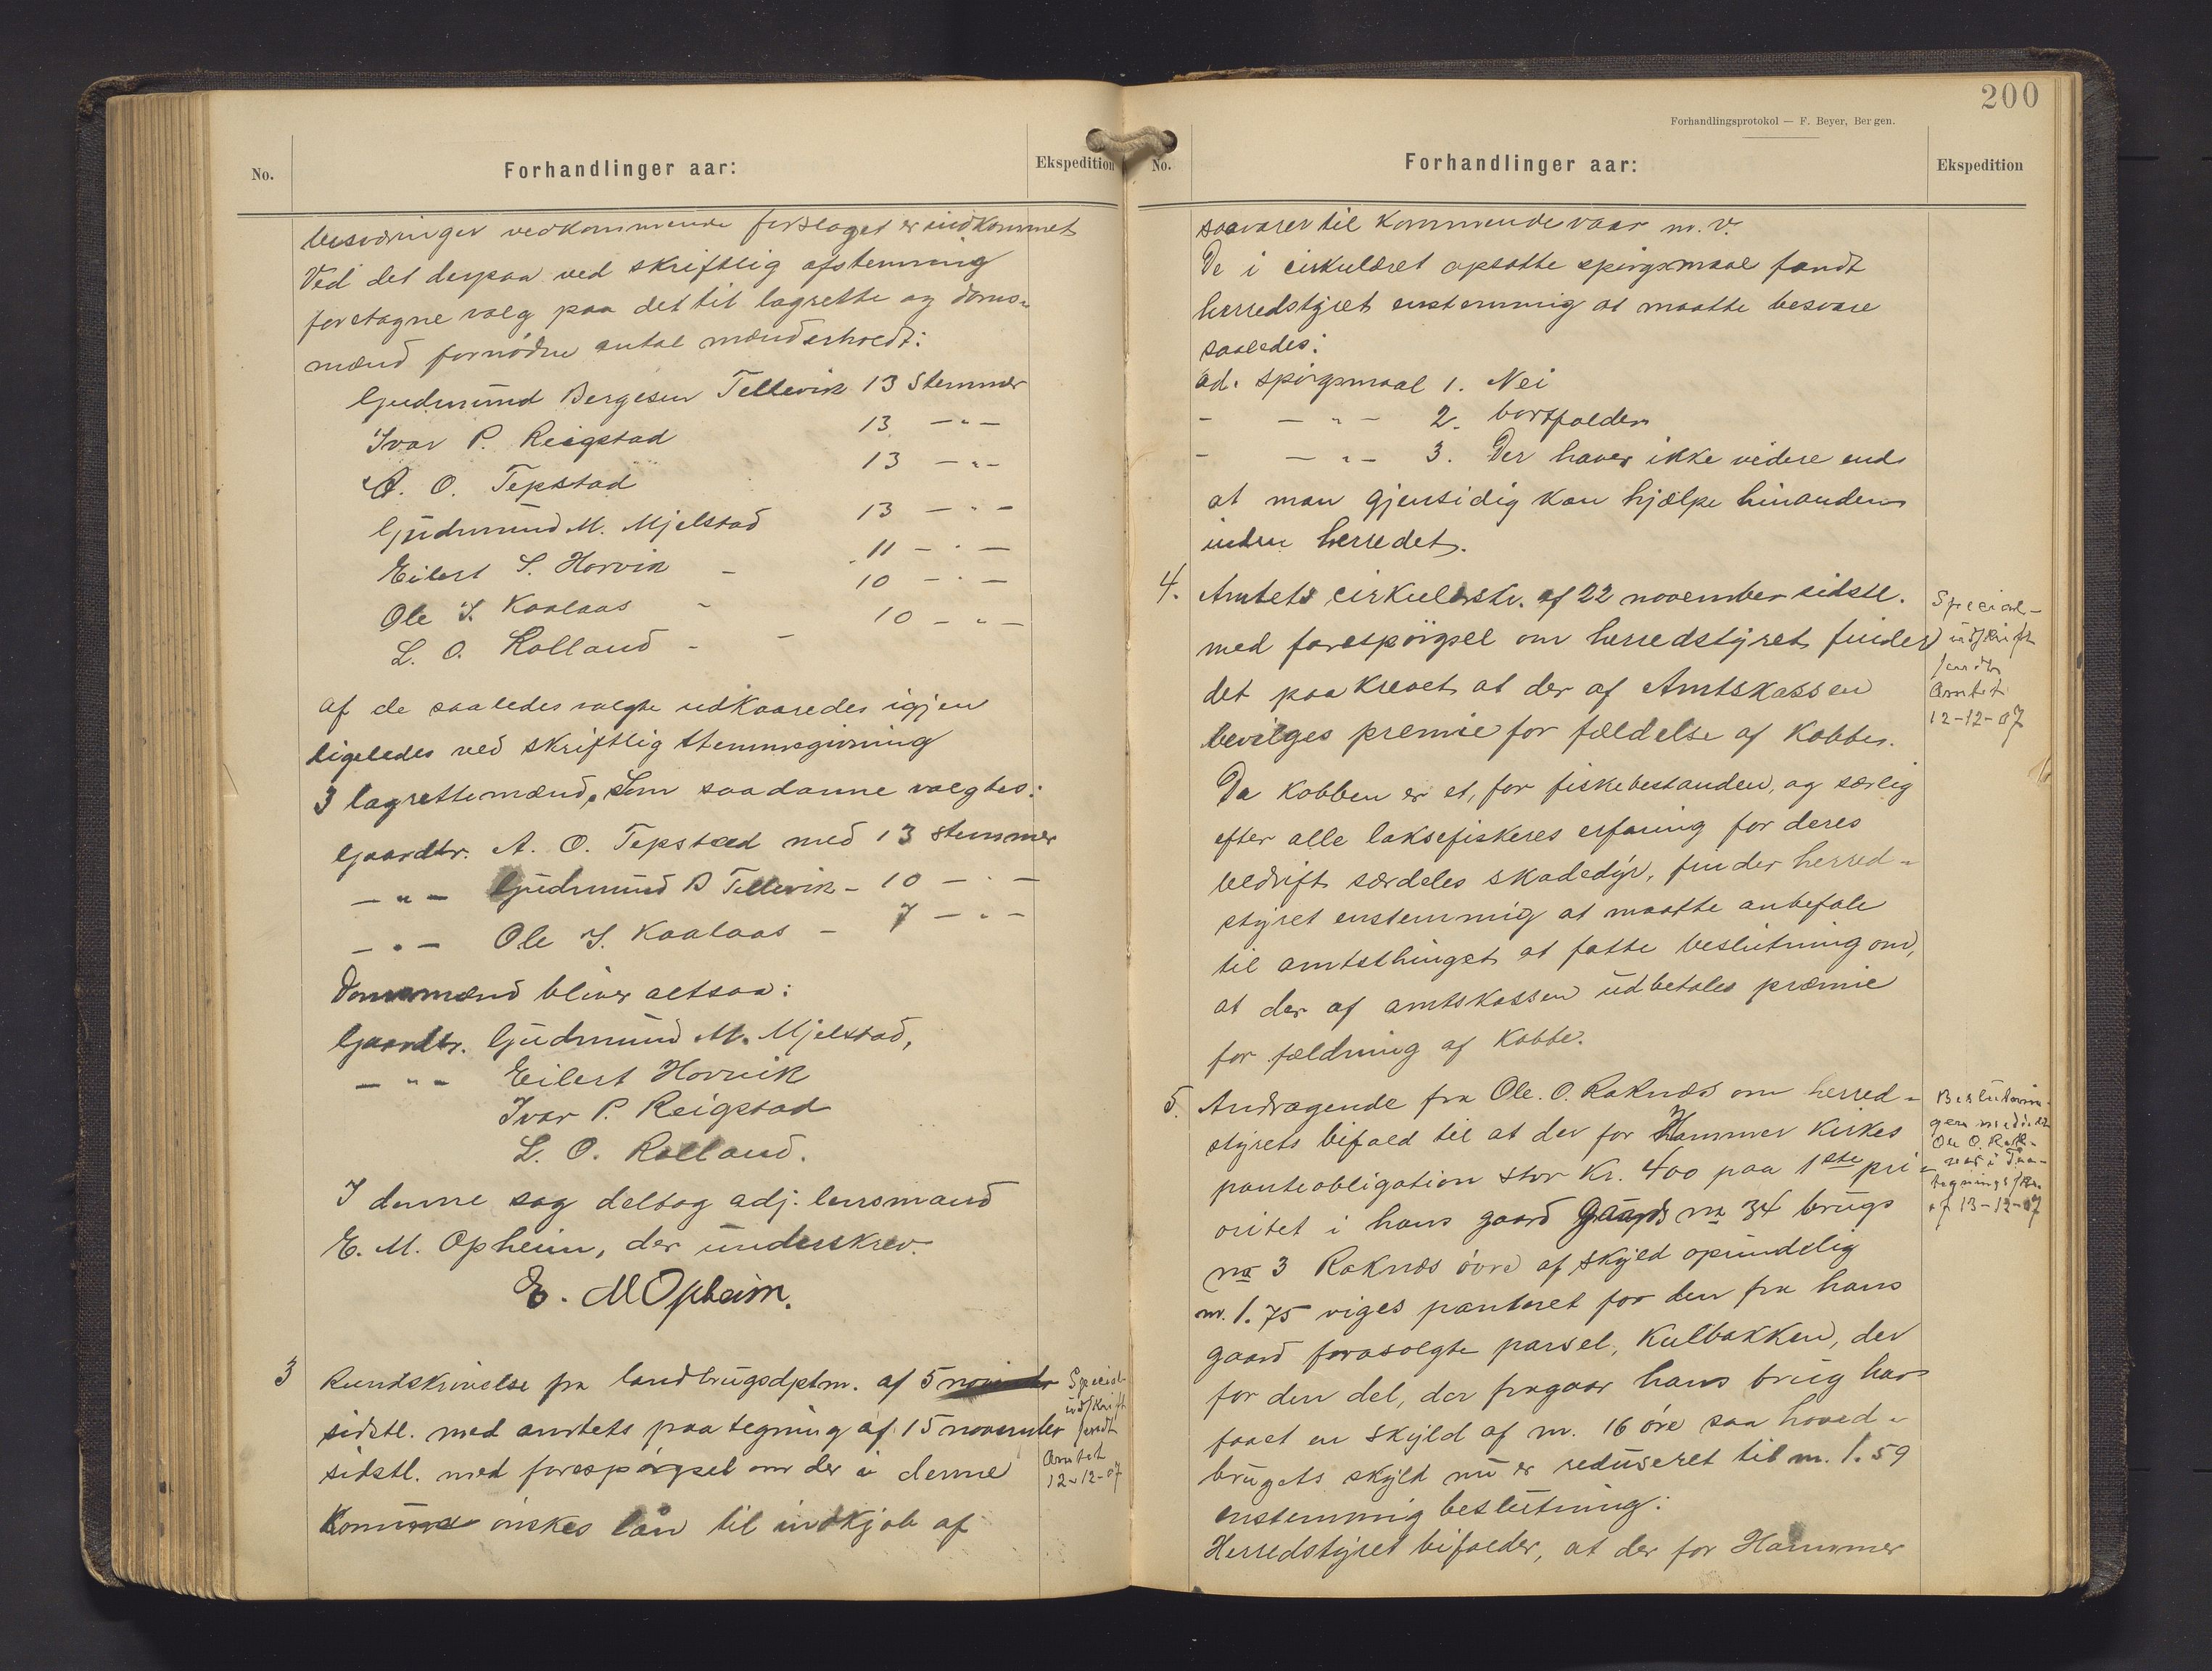 No.
Forhandlinger aar:
Ekspedition
besværinger vedkommende forslaget er indkommet
Ved det derpaa ved skriftlig afstemning
foretagne valg paa det til lagrette og doms-
mænd fornødne antal mænd erholdt:
Gudmund Bergesen Tellevik 13 Stemmer
Ivar P. Reigstad 13 — " —
A. O. Tepstad 13 — " —
Gudmund M. Mjelstad 13 — " —
Eilert S. Horvik - 11 — " —
Ole I. Kaalaas - 10 — " —
L. O. Rolland - - 10 — " —
Af de saaledes valgte udkaaredes igjen
ligeledes ved skriftlig stemmegivning
3 lagrettemænd. Som saadanne valgtes:
Gaardbr. A. O. Tepstad med 13 stemmer
— " — Gudmund B Tellevik - 10 — " —
— " — Ole I. Kaalaas - 7 — " —
Domsmænd bliver altsaa:
Gaardbr. Gudmund M. Mjelstad,
— " — Eilert Horvik
Ivar P. Reigstad
L. O. Rolland.
I denne sag deltog adj. lensmand
E. M. Opheim, der underskrev.
E. M Opheim.
3 Rundskrivelse fra landbrugsdptm. af 5 novembr
sidstl. med amtets paategning af 15 november
sidstl. med forespørgsel om der i denne
Komune ønskes lån til indkjøb af
Special-
udskrift
sendt
Amtet
12-12-07
200
Forhandlingsprotokol — F. Beyer, Bergen.
No.
Forhandlinger aar:
Ekspedition
saavarer til kommende vaar m. v.
De i cirkulæret opsatte spørgsmaal fandt
herredstyret enstemmig at maatte besvare
saaledes:
ad. spørgsmaal 1. Nei
- — " — 2. bortfalder
- — " — 3. Der haves ikke videre end
at man gjensidig kan hjælpe hinanden
inden herredet.
4. Amtets cirkulærskr. af 22 november sidstl.
med forespørgsel om herredstyret finder
det paakrevet at der af Amtskassen
bevilges premie for fældelse af Kobbe.
Da kobben er et, for fiskebestanden, og særlig
efter alle laksefiskeres erfaring for deres
bedrift særdeles skadedyr, finder herred-
styret enstemmig at maatte anbefale
til amtsthinget at fatte beslutning om,
at der af amtskassen udbetales præmie
for fældning af Kobbe.
Special-
udskrift
sendt
Amtet
12-12-07
5. Andragende fra Ole. O. Raknæs om herred-
styrets bifald til at der for Hammer Kirkes
panteobligation stor Kr. 400 paa 1ste pri-
oritet i hans gaard Gaards no 34 brugs
no 3 Raknæs øvre af skyld oprindelig
m. 1.75 viges panteret for den fra hans
gaard frasolgte parsel, Kulbakken, der
for den del, der fragaar hans brug har
faaet en skyld af m. 16 øre saa hoved-
brugets skyld nu er reduseret til m. 1.59
enstemmig beslutning:
Herredstyret bifalder, at der for Hammer
Beslutnin-
gen meddelt
Ole O. Rak-
næs i Paa-
tegningsskr.
af 13-12-07